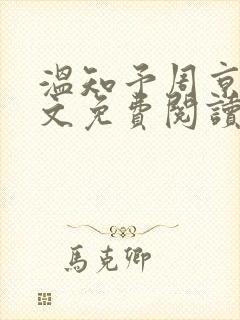 溫知予周京
文免費閱讀
馬克卿